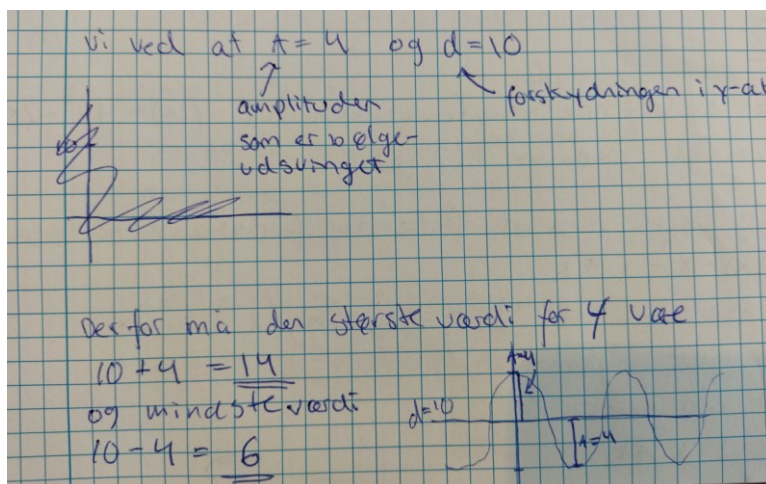 vi ved at A = 4 og d = 10
amplituden
som er bølge-
udsvinget
forskydningen i y-ak
Derfor må den største værdi for f være
10 + 4 = 14
og mindsteværdi
10 - 4 = 6
A=4
d=10
A=4